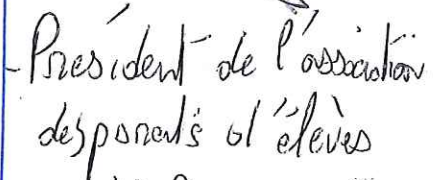 - Président de l'association
des parents d'élèves